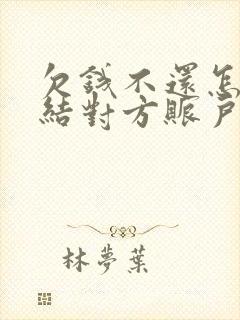 欠錢不還怎
結對方賬戶
林夢葉